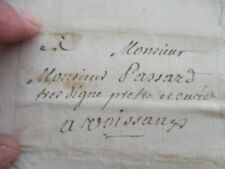 à Monsieur
Monsieur Passard
tres digne pretre et curé
a voissant